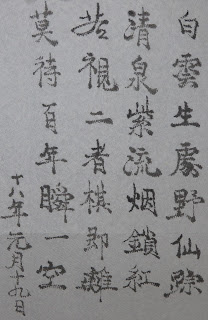 白雲生處野仙踪
清泉紫流烟鎖紅
若視二者棋即離
莫待百年瞬一空
十八年元月十九日